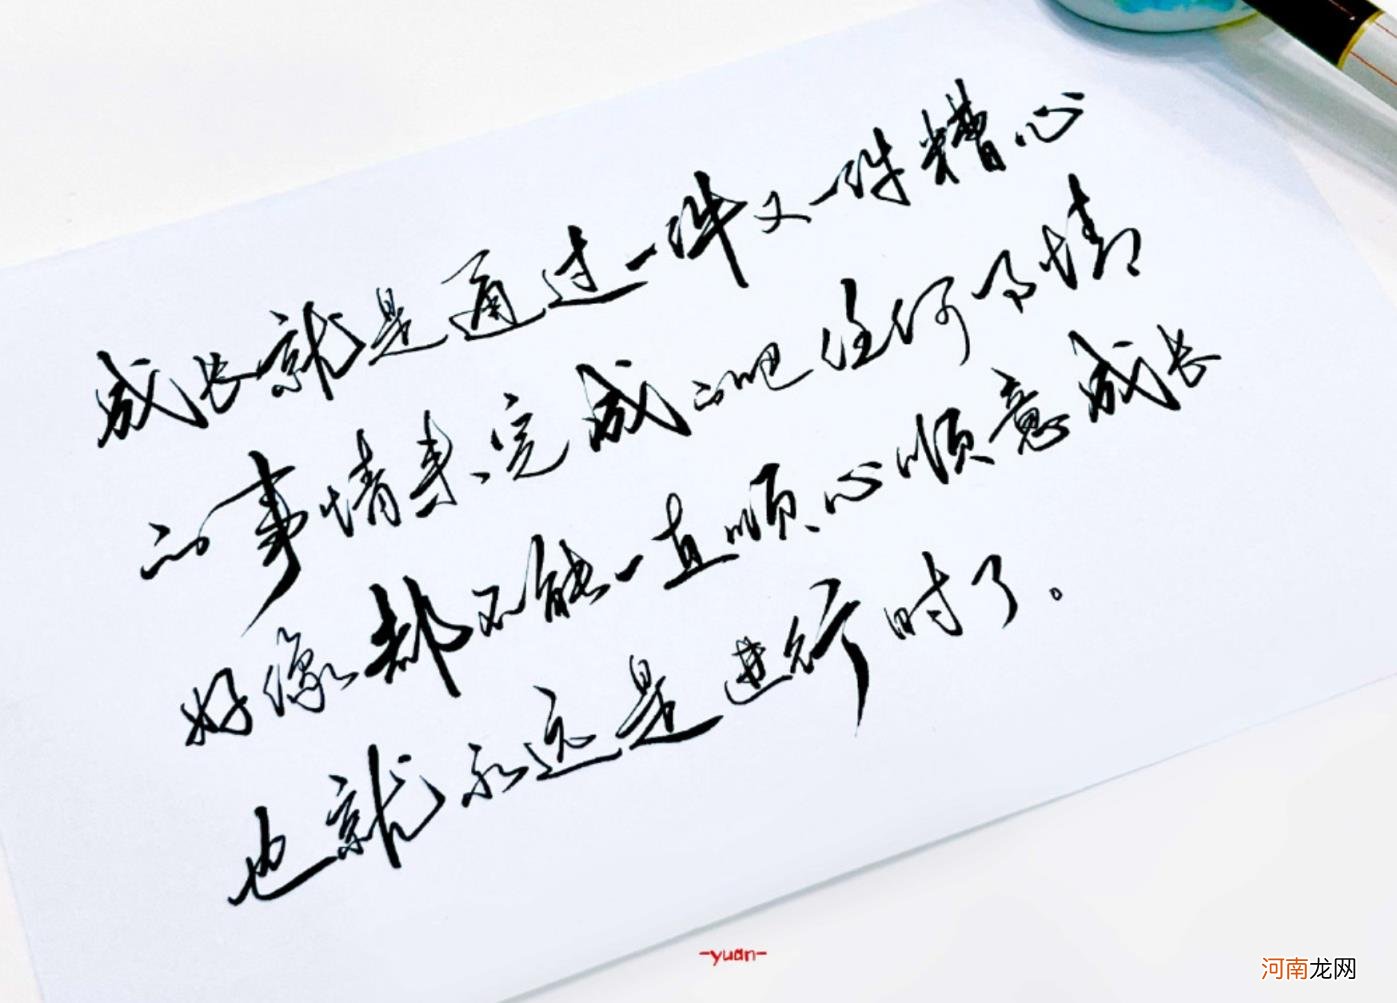 成长就是通过一件又一件糟心
的事情来完成的吧任何事情
好像都不能一直顺心顺意成长
也就永远是进行时了。
-yuan-
河南龙网